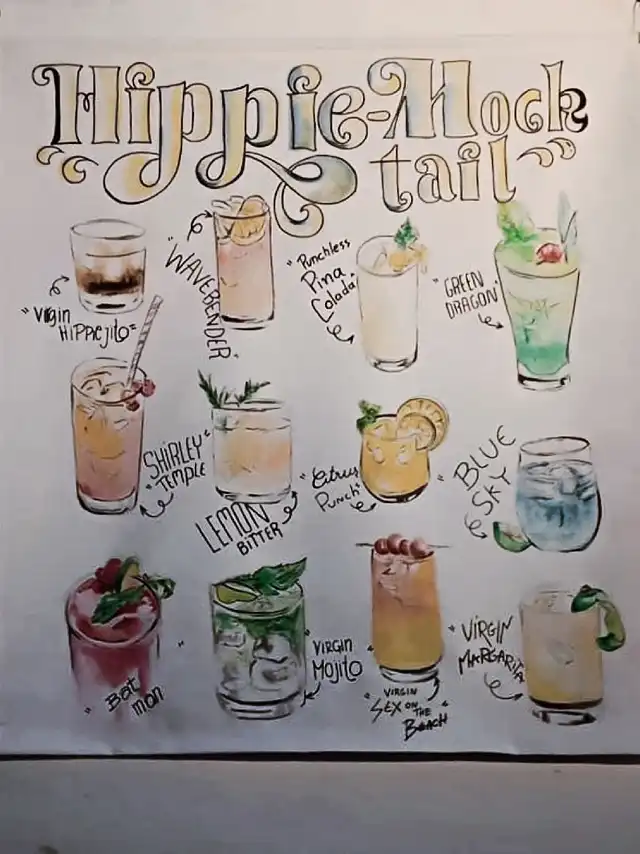 Hippie-Mock
tail
"Virgin
HiPPiejito"
"WAVEBENDER"
"Punchless
Pina
Colada"
"GREEN
DRAGON"
"SHIRLEY
TEMPLE"
LEMON
BITTER
"Citrus
Punch"
"BLUE
SKY
"Bat
man"
"VIRGIN
Mojito
"VIRGIN
SEX ON THE
BEACH"
"VIRGIN
MARGARITA"